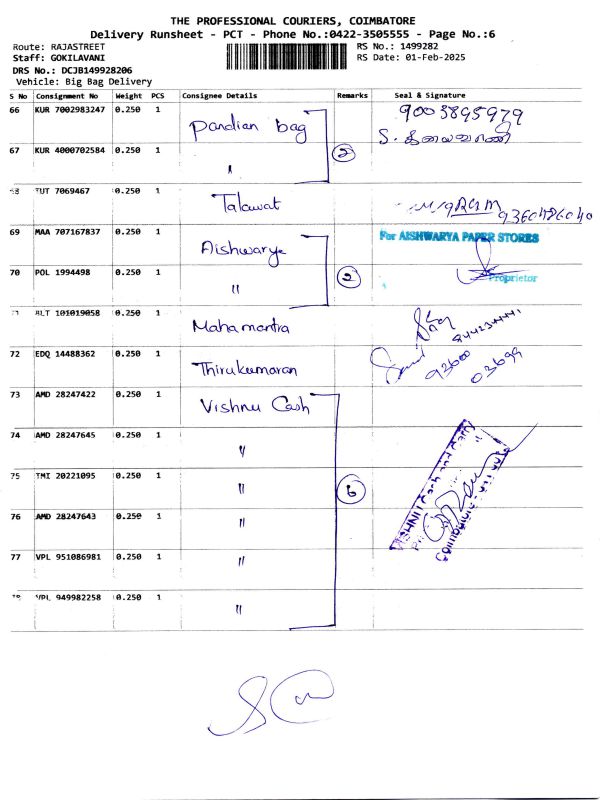 THE PROFESSIONAL COURIERS, COIMBATORE
Delivery Runsheet - PCT - Phone No.:0422-3505555 - Page No.:6
Route: RAJASTREET
RS No.: 1499282
Staff: GOKILAVANI
RS Date: 01-Feb-2025
DRS No.: DCJB149928206
Vehicle: Big Bag Delivery
S No Consignment No Weight PCS Consignee Details Remarks Seal & Signature
66 KUR 7002983247 0.250 1 Pandian bag 9003895979
67 KUR 4000702584 0.250 1 " 2
68 TUT 7069467 0.250 1 Talawat
69 MAA 707167837 0.250 1 Aishwarya For AISHWARYA PAPER STORES
70 POL 1994498 0.250 1 " 2 Proprietor
71 BLT 101019058 0.250 1 Mahamantra
72 EDQ 14488362 0.250 1 Thirukumaran 93600 03699
73 AMD 28247422 0.250 1 Vishnu Cash
74 AMD 28247645 0.250 1 "
75 TMI 20221095 0.250 1 " 6
76 AMD 28247643 0.250 1 "
77 VPL 951086981 0.250 1 "
78 VPL 949982258 0.250 1 "
VISHNU Cash and Carry